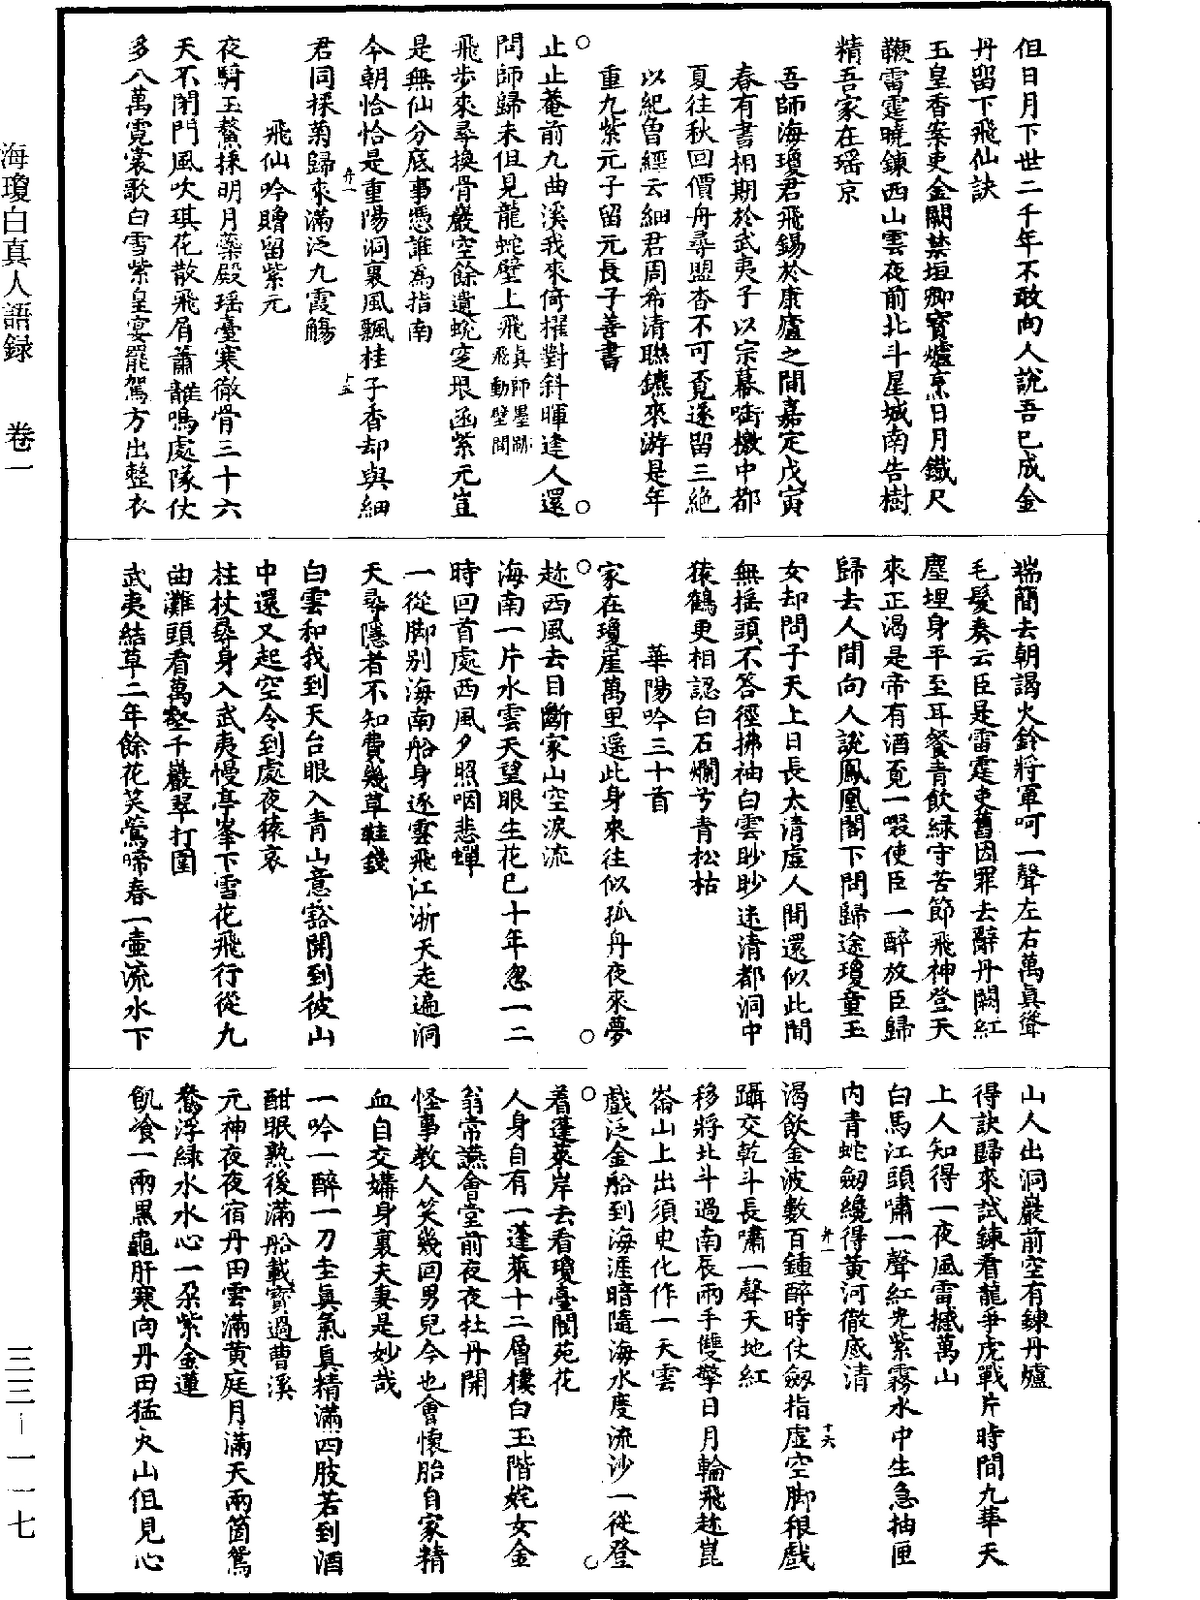 但日月下世二千年不敢向人說吾已成金
丹留下飛仙訣
玉皇香案吏金闕禁垣卿寳爐烹日月鐵尺
鞭雷霆曉鍊西山雲夜前北斗星城南告樹
精吾家在瑶京
吾師海瓊君飛錫於康廬之間嘉定戊寅
春有書相期於武夷子以宗幕啨檄中都
夏往秋回價舟尋盟杳不可覔遂留三絶
以紀魯經云細君周希清聯鑣來游是年
重九紫元子留元長子善書
止止菴前九曲溪我來倚擢對斜暉逢人還
問師歸未但見龍蛇壁上飛真師墨跡飛動壁間
飛步來尋換骨巖空餘遺蛻䆪垠函紫元豈
是無仙分底事憑誰爲指南
今朝恰恰是重陽洞裏風飄桂子香却與細
君同採菊歸來滿泛九霞觴
飛仙吟贈留紫元
夜騎玉鰲採明月蘂殿瑶臺寒徹骨三十六
天不閉門風吹琪花散飛屑蕭韶鳴處隊仗
多八萬霓裳歌白雪紫皇宴罷駕方出整衣
端簡去朝謁火鈴將軍呵一聲左右萬真聳
毛髮奏云臣是雷霆吏舊因罪去辭丹闕紅
塵埋身平至耳餐青飲緑守苦節飛神登天
來正渴是帝有酒覔一啜使臣一醉放臣歸
歸去人間向人說鳳凰閣下問歸途瓊童玉
女却問子天上日長太清虚人間還似此間
無搖頭不答徑拂袖白雲眇眇迷清都洞中
猿鶴更相認白石爛兮青松枯
華陽吟三十首
家在瓊崖萬里遥此身來往似孤舟夜來夢
趂西風去目斷家山空淚流
海南一片水雲天望眼生花已十年忽一二
時回首處西風夕照咽悲蟬
一從脚别海南船身逐雲飛江浙天走遍洞
天尋隱者不知費幾草鞋錢
白雲和我到天台眼入青山意豁開到彼山
中還又起空令到處夜猿哀
柱杖尋身入武夷慢亭峯下雪花飛行從九
曲灘頭看萬壑千巖翠打圍
武夷結草二年餘花笑鶯啼春一壷流水下
山人出洞巖前空有鍊丹爐
得訣歸來試鍊看龍爭虎戰片時間九華天
上人知得一夜風雷撼萬山
白馬江頭嘯一聲紅光紫霧水中生急抽匣
内青蛇劒纔得黄河徹底清
渴飲金波數百鍾醉時仗劒指虚空脚根戲
躡交乾斗長嘯一聲天地紅
移將北斗過南辰兩手雙擎日月輪飛趂崑
崙山上出須史化作一天雲
戲泛金船到海涯暗隨海水度流沙一從登
着蓬萊岸去看瓊臺閬苑花
人身自有一蓬萊十二層樓白玉階姹女金
翁常讌會堂前夜夜牡丹開
怪事教人笑幾回男兒今也會懷胎自家精
血自交媾身裏夫妻是妙哉
一吟一醉一刀圭真氣真精滿四肢若到酒
酣眠熟後滿船載寳過曹溪
元神夜夜宿丹田雲滿黄庭月滿天兩箇鴛
鴦浮緑水水心一朶紫金蓮
飢飡一兩黑龜肝寒向丹田猛火山但見心
海瓊白真人語録 卷一
三三－一一七